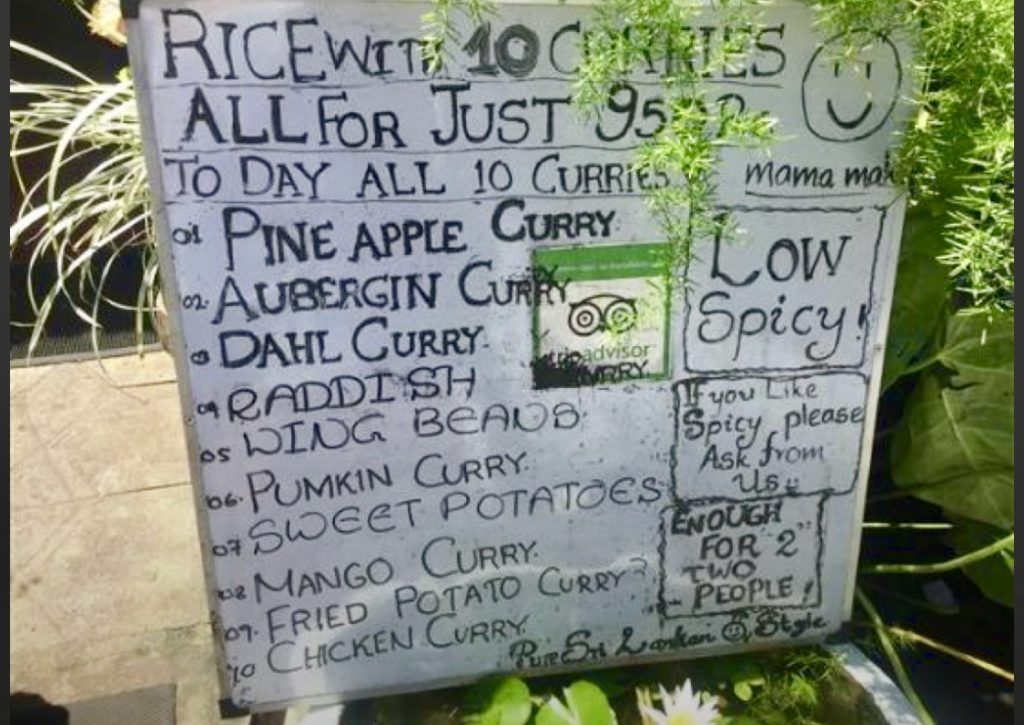 RICE WITH 10 CURRIES
ALL FOR JUST 95
TO DAY ALL 10 CURRIES
mama
01 PINE APPLE CURRY
02. AUBERGIN CURRY
03 DAHL CURRY.
04 RADDISH
05 WING BEANS
06. PUMKIN CURRY.
07 SWEET POTATOES
08. MANGO CURRY.
09. FRIED POTATO CURRY
10 CHICKEN CURRY.
tripadvisor
CURRY
LOW
Spicy!
If you Like
Spicy please
Ask from
Us
ENOUGH
FOR 2
TWO
PEOPLE!
Pure Sri Lankan Style